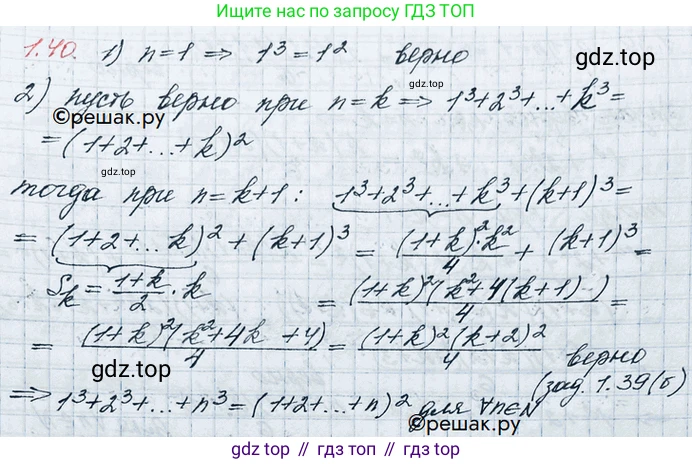 Ищите нас по запросу ГДЗ ТОП
1.40. 1) n=1 ⇒ 1³=1² верно
gdz.top
2) пусть верно при n=k ⇒ 1³+2³+...+k³=
©решак.ру
=(1+2+...+k)²
тогда при n=k+1: 1³+2³+...+k³+(k+1)³=
=(1+2+...k)²+(k+1)³ = (1+k)²·k²/4 + (k+1)³ =
Sk = 1+k/2 · k = (1+k)²(k²+4(k+1))/4 =
= (1+k)²(k²+4k+4)/4 = (1+k)²(k+2)²/4 верно
gdz.top
(зад. 1.39(б)
⇒ 1³+2³+...+n³=(1+2+...+n)² для ∀n∈N
©решак.ру
gdz top // гдз топ // gdz.top